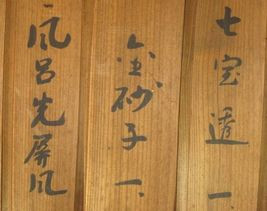 七宝透 一
金砂子 一、
風呂先屏風